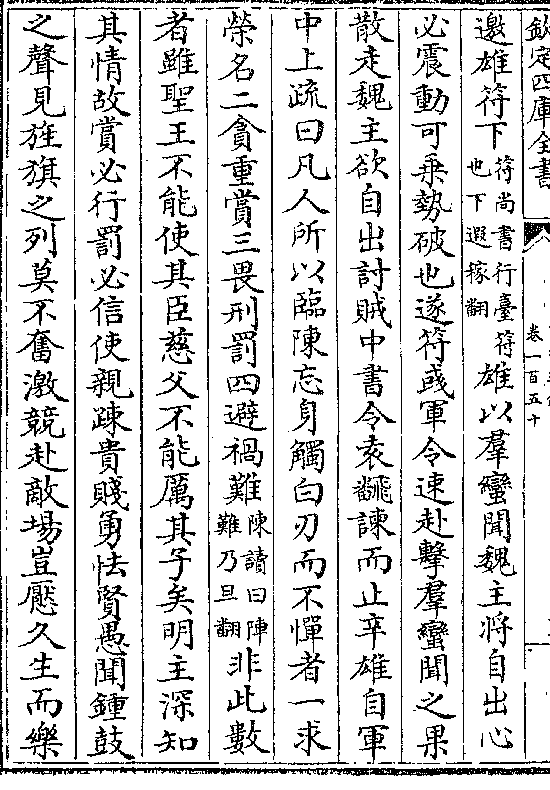 欽定四庫全書
卷一百五十
邀雄符下符尚書行臺符也下遐稼翻雄以羣蠻聞魏主將自出心
必震動可乗勢破也遂符彧軍令速赴擊羣蠻聞之果
散走魏主欲自出討賊中書令袁飜諫而止辛雄自軍
中上疏曰凡人所以臨陳忘身觸白刃而不憚者一求
榮名二貪重賞三畏刑罰四避禍難陳讀曰陣難乃旦翻非此數
者雖聖王不能使其臣慈父不能厲其子矣明主深知
其情故賞必行罰必信使親踈貴賤勇怯賢愚聞鍾鼓
之聲見旌旗之列莫不奮激競赴敵場豈厭久生而樂